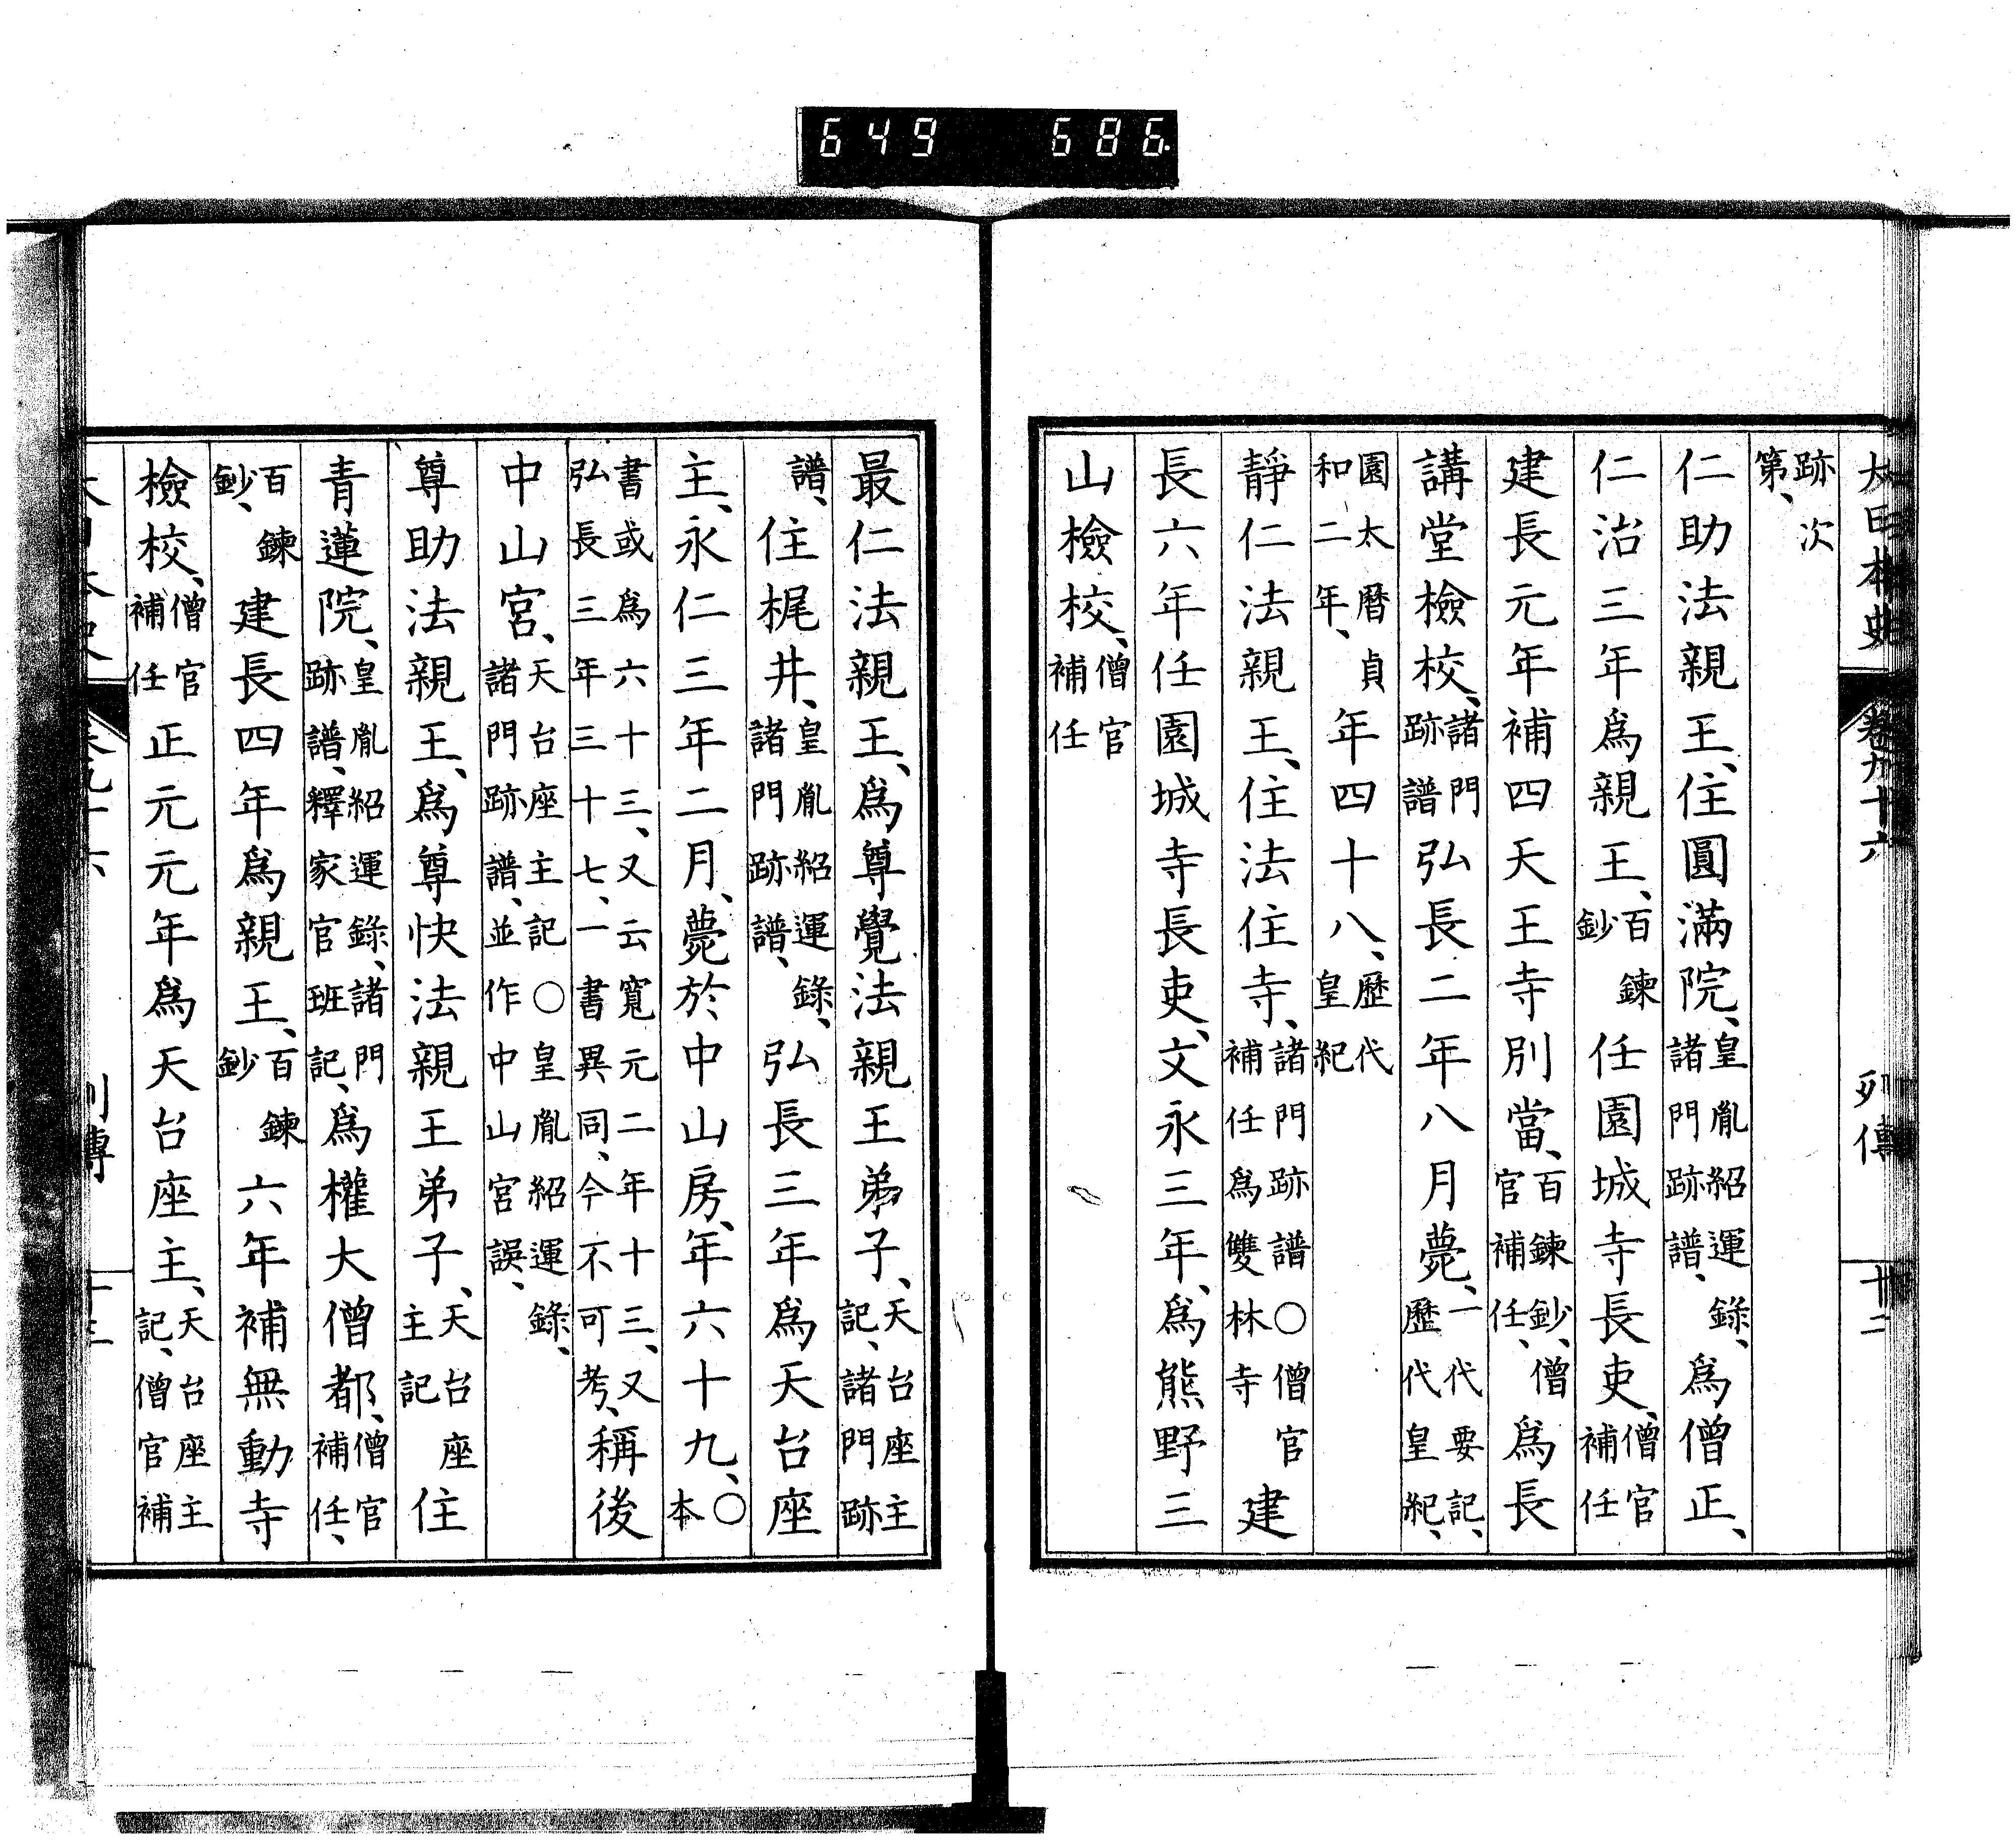 649 686
大日本史 卷九十六 列傳 十二
跡次第、
仁助法親王、住圓滿院、皇胤紹運錄、諸門跡譜、爲僧正、
仁治三年爲親王、百鍊鈔任園城寺長吏、僧官補任
建長元年補四天王寺別當、百鍊鈔、僧官補任、爲長
講堂檢校、諸門跡譜弘長二年八月薨、一代要記、歷代皇紀、
園太曆貞和二年、年四十八、歷代皇紀
靜仁法親王、住法住寺、諸門跡譜○僧官補任爲雙林寺建
長六年任園城寺長吏、文永三年、爲熊野三
山檢校、僧官補任
最仁法親王、爲尊覺法親王弟子、天台座主記、諸門跡
譜、住梶井、皇胤紹運錄、諸門跡譜、弘長三年爲天台座
主、永仁三年二月、薨於中山房、年六十九、○本
書或爲六十三、又云寬元二年十三、又弘長三年三十七、一書異同、今不可考、稱後
中山宮、天台座主記○皇胤紹運錄、諸門跡譜、並作中山宮誤、
尊助法親王、爲尊快法親王弟子、天台座主記住
青蓮院、皇胤紹運錄、諸門跡譜、釋家官班記、爲權大僧都、僧官補任、
百鍊鈔、建長四年爲親王、百鍊鈔六年補無動寺
檢校、僧官補任正元元年爲天台座主、天台座主記、僧官補